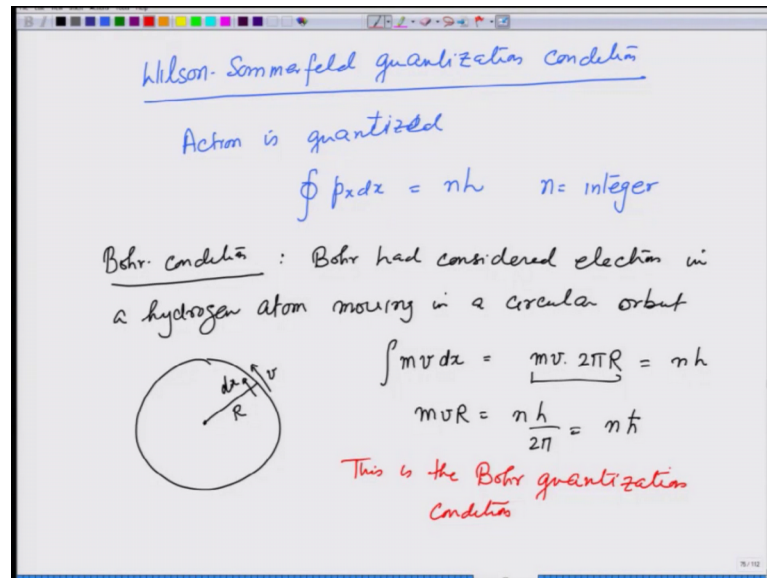 Wilson-Sommerfeld quantization condition
Action is quantized
∮ pxdx = nh   n = integer
Bohr condition : Bohr had considered electron in
a hydrogen atom moving in a circular orbit
∫ mv dx = mv. 2πR = nh
dx v
R
mvR = n h/2π = nħ
This is the Bohr quantization
condition